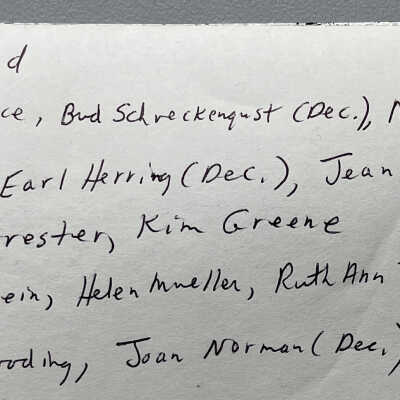 d
ce, Bud Schreckengust (Dec.),
Earl Herring (Dec.), Jean
rester, Kim Greene
ein, Helen Mueller, Ruth Ann
oding, Joan Norman (Dec.)